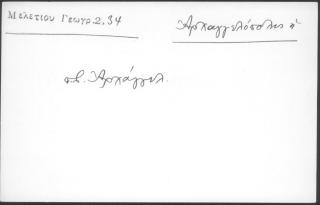 Μελετίου Γεωγρ. 2, 34
Ἀρχαγγελόπολις ἡ
πβ. Ἀρχάγγελ.